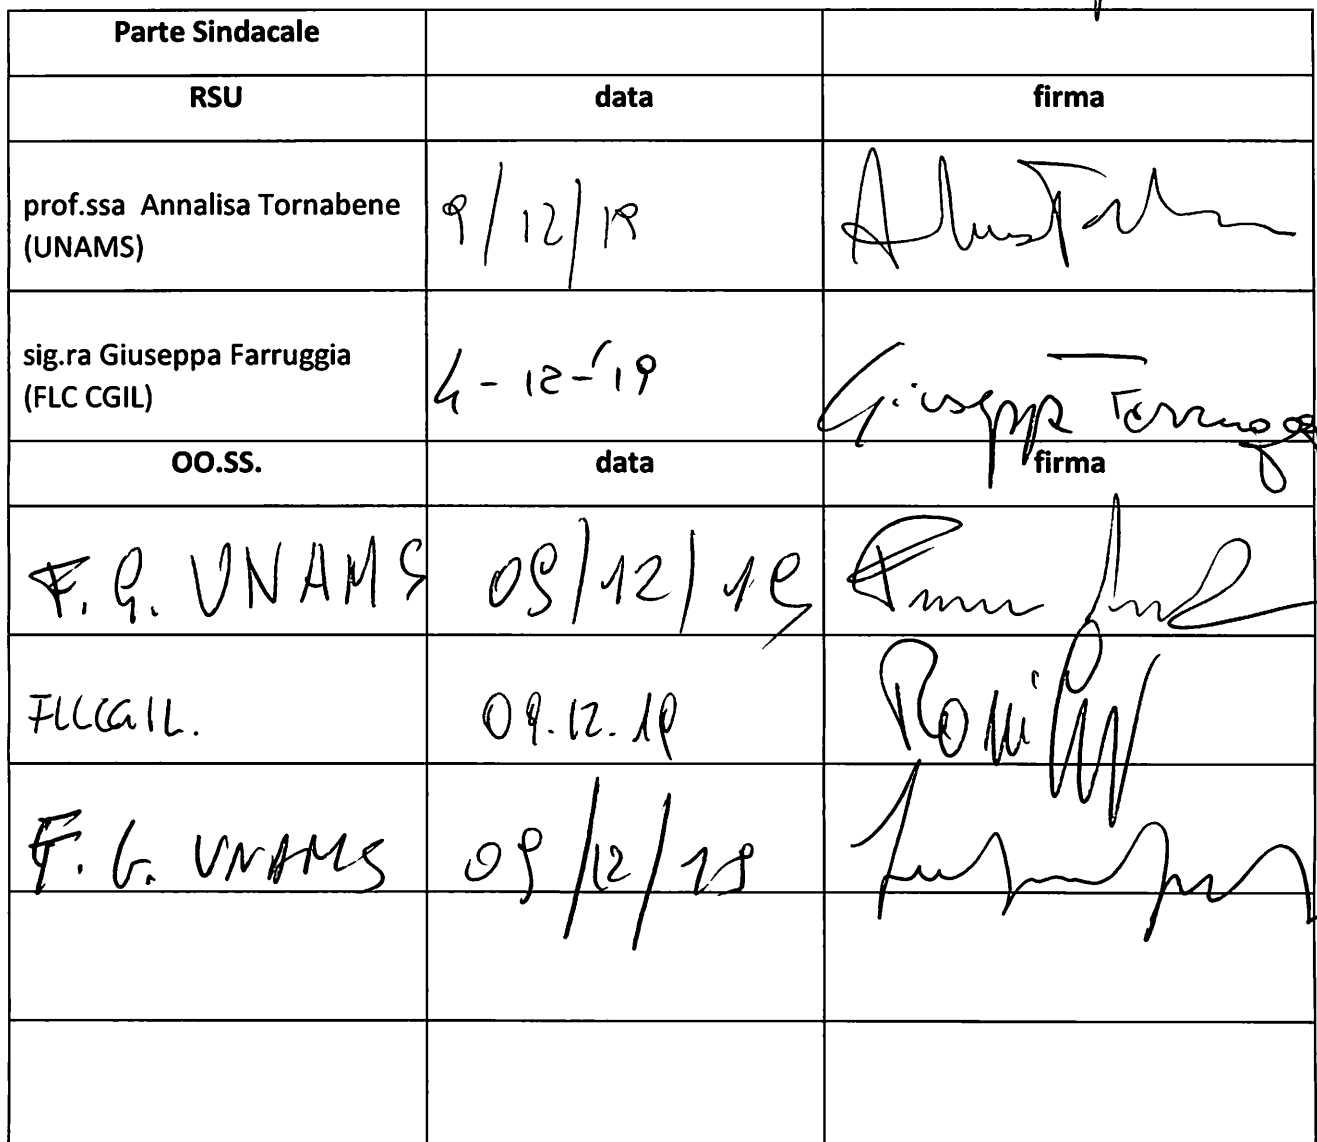 Parte Sindacale
RSU data firma
prof.ssa Annalisa Tornabene
(UNAMS) 9/12/19
sig.ra Giuseppa Farruggia
(FLC CGIL) 4-12-'19 Giuseppa Farruggia
OO.SS. data firma
F.G. UNAMS 09/12/19
FLCCGIL. 09.12.19
F.G. UNAMS 09/12/19